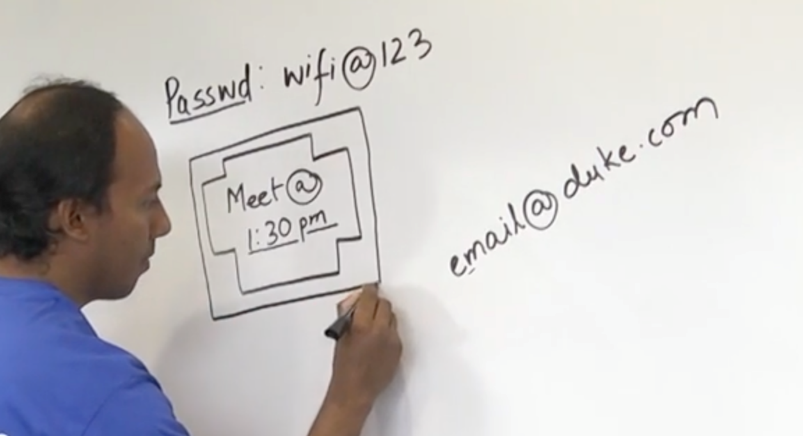 Passwd: wifi@123
Meet @
1:30 pm
email@duke.com